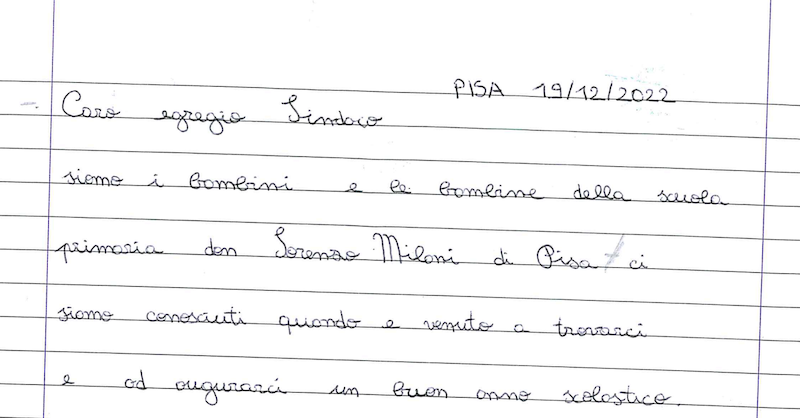 PISA 19/12/2022
Caro egregio Sindaco
siamo i bambini e le bambine della scuola
primaria don Lorenzo Milani di Pisa ci
siamo conosciuti quando e venuto a trovarci
e ad augurarci un buon anno scolastico.